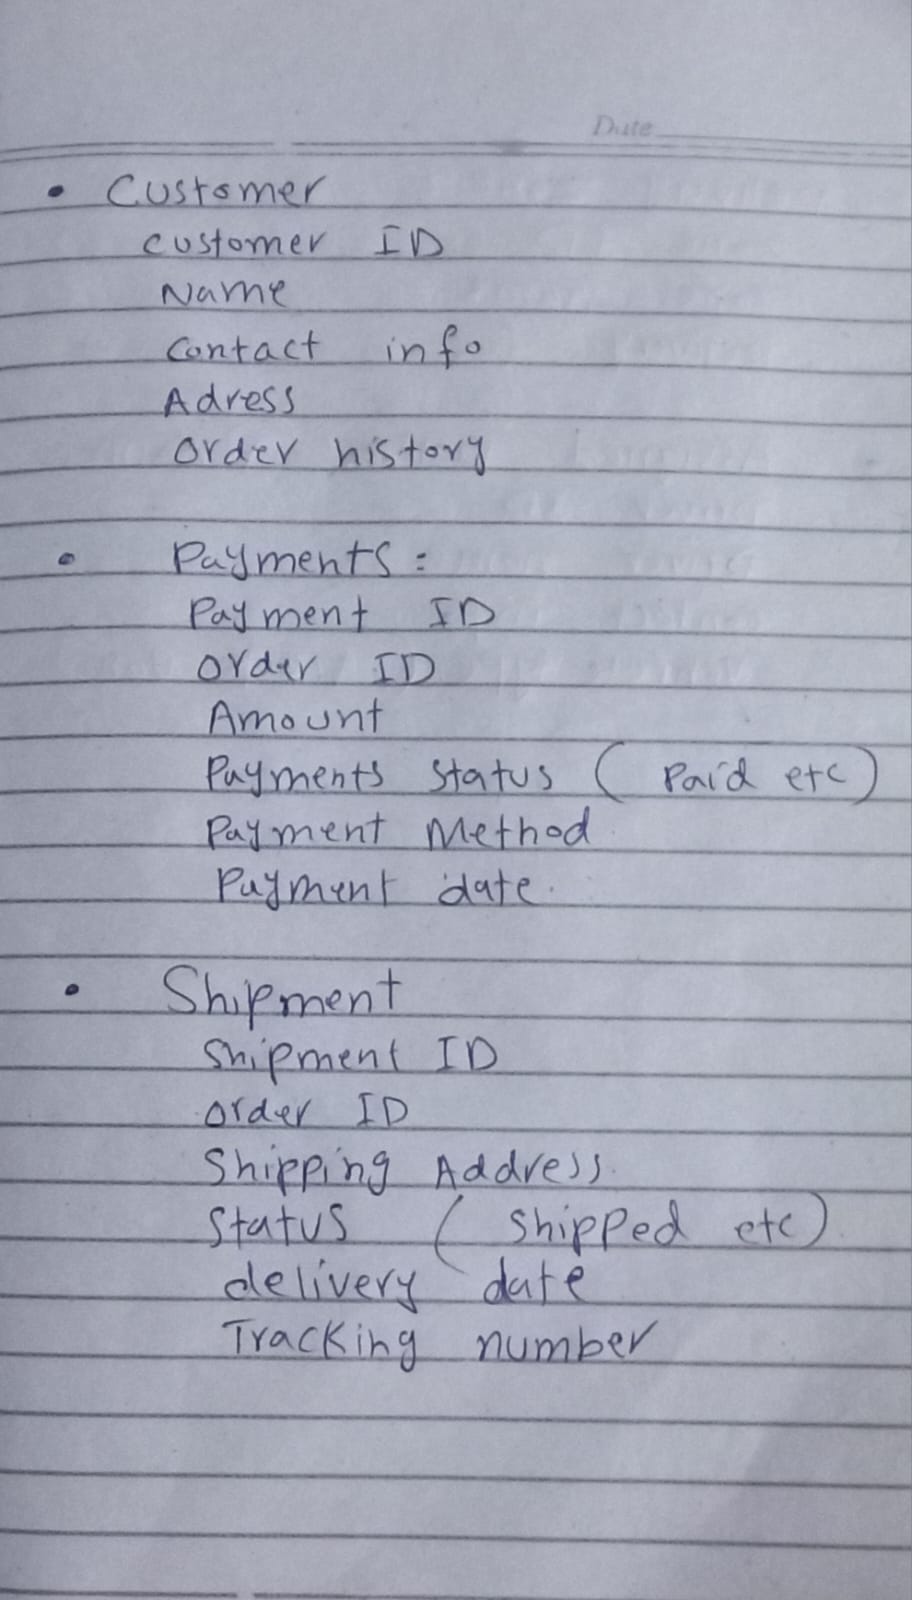 Date
• Customer
customer ID
Name
Contact info
Adress
Order history
• Payments :
Payment ID
Order ID
Amount
Payments Status ( Paid etc )
Payment Method
Payment date.
• Shipment
Shipment ID
Order ID
Shipping Address.
Status ( Shipped etc )
delivery date
Tracking number